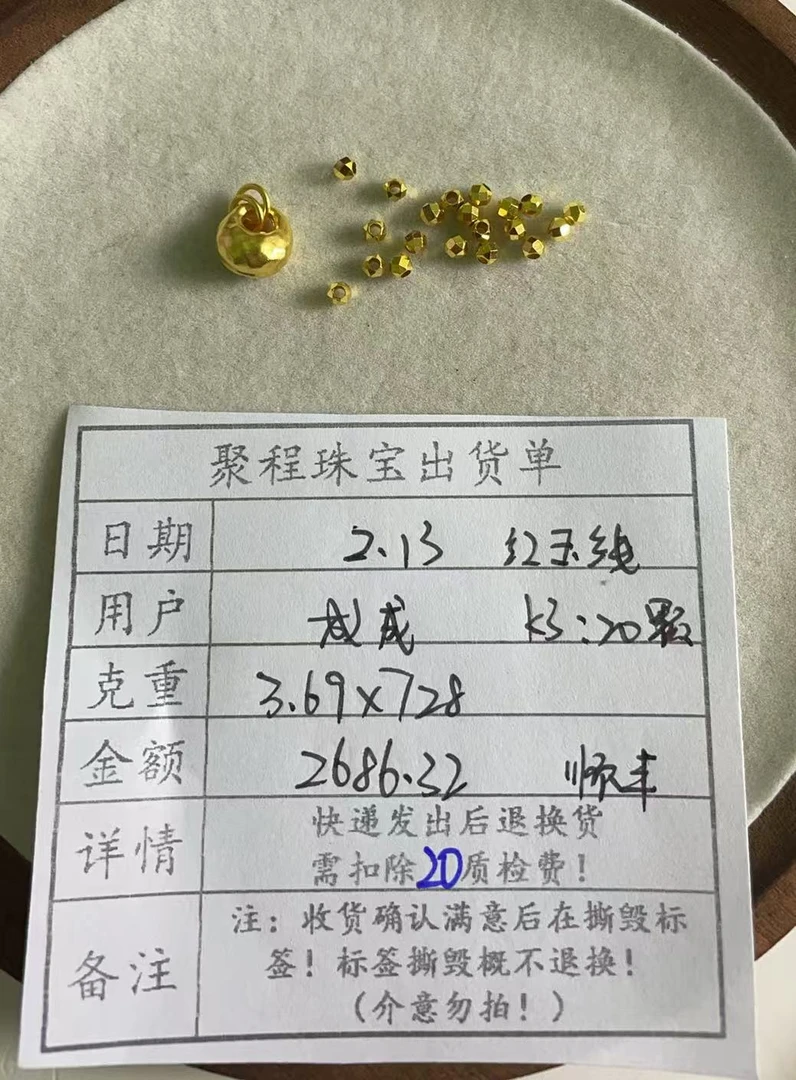 聚程珠宝出货单
日期 2.13 红玉线
用户 成成 k3:20颗
克重 3.69x728
金额 2686.32 顺丰
详情 快递发出后退换货
需扣除20质检费!
备注 注:收货确认满意后在撕毁标
签!标签撕毁概不退换!
(介意勿拍!)